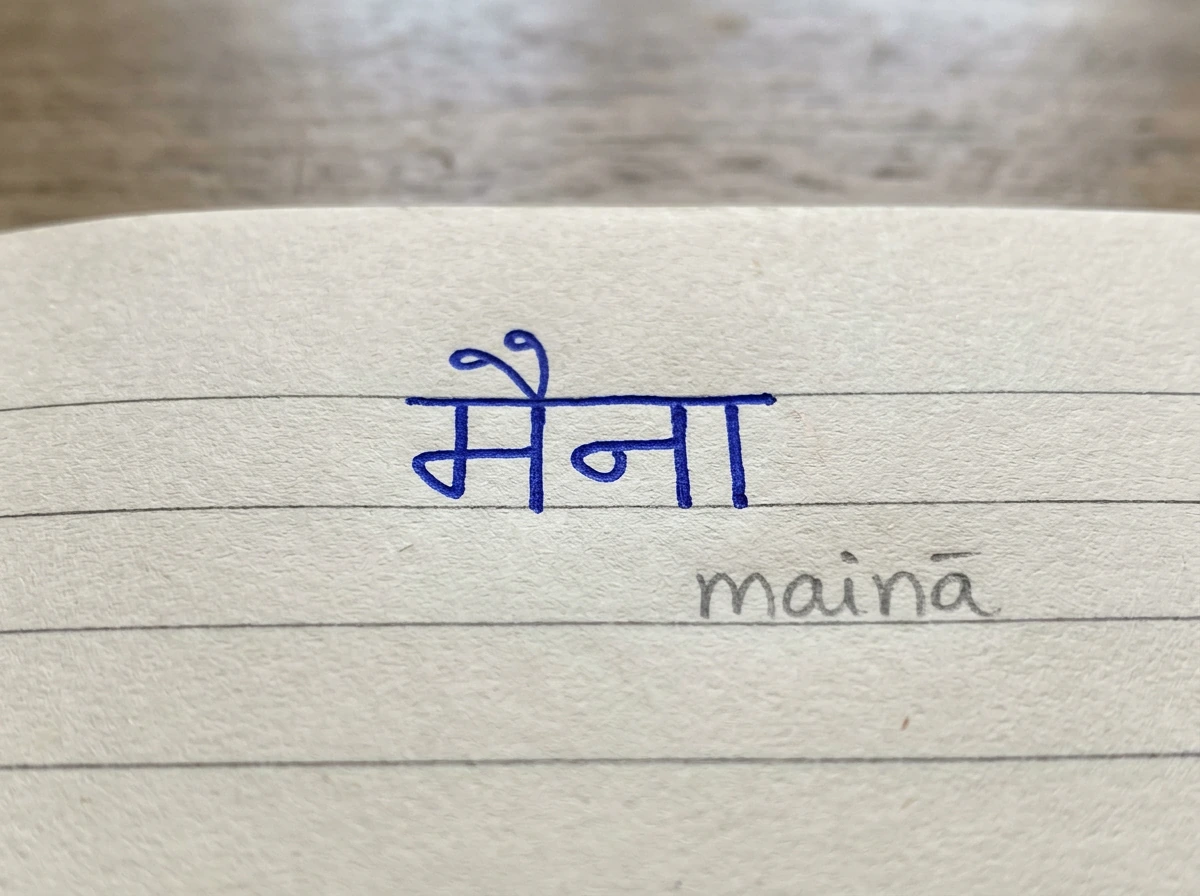 मैना
mainā